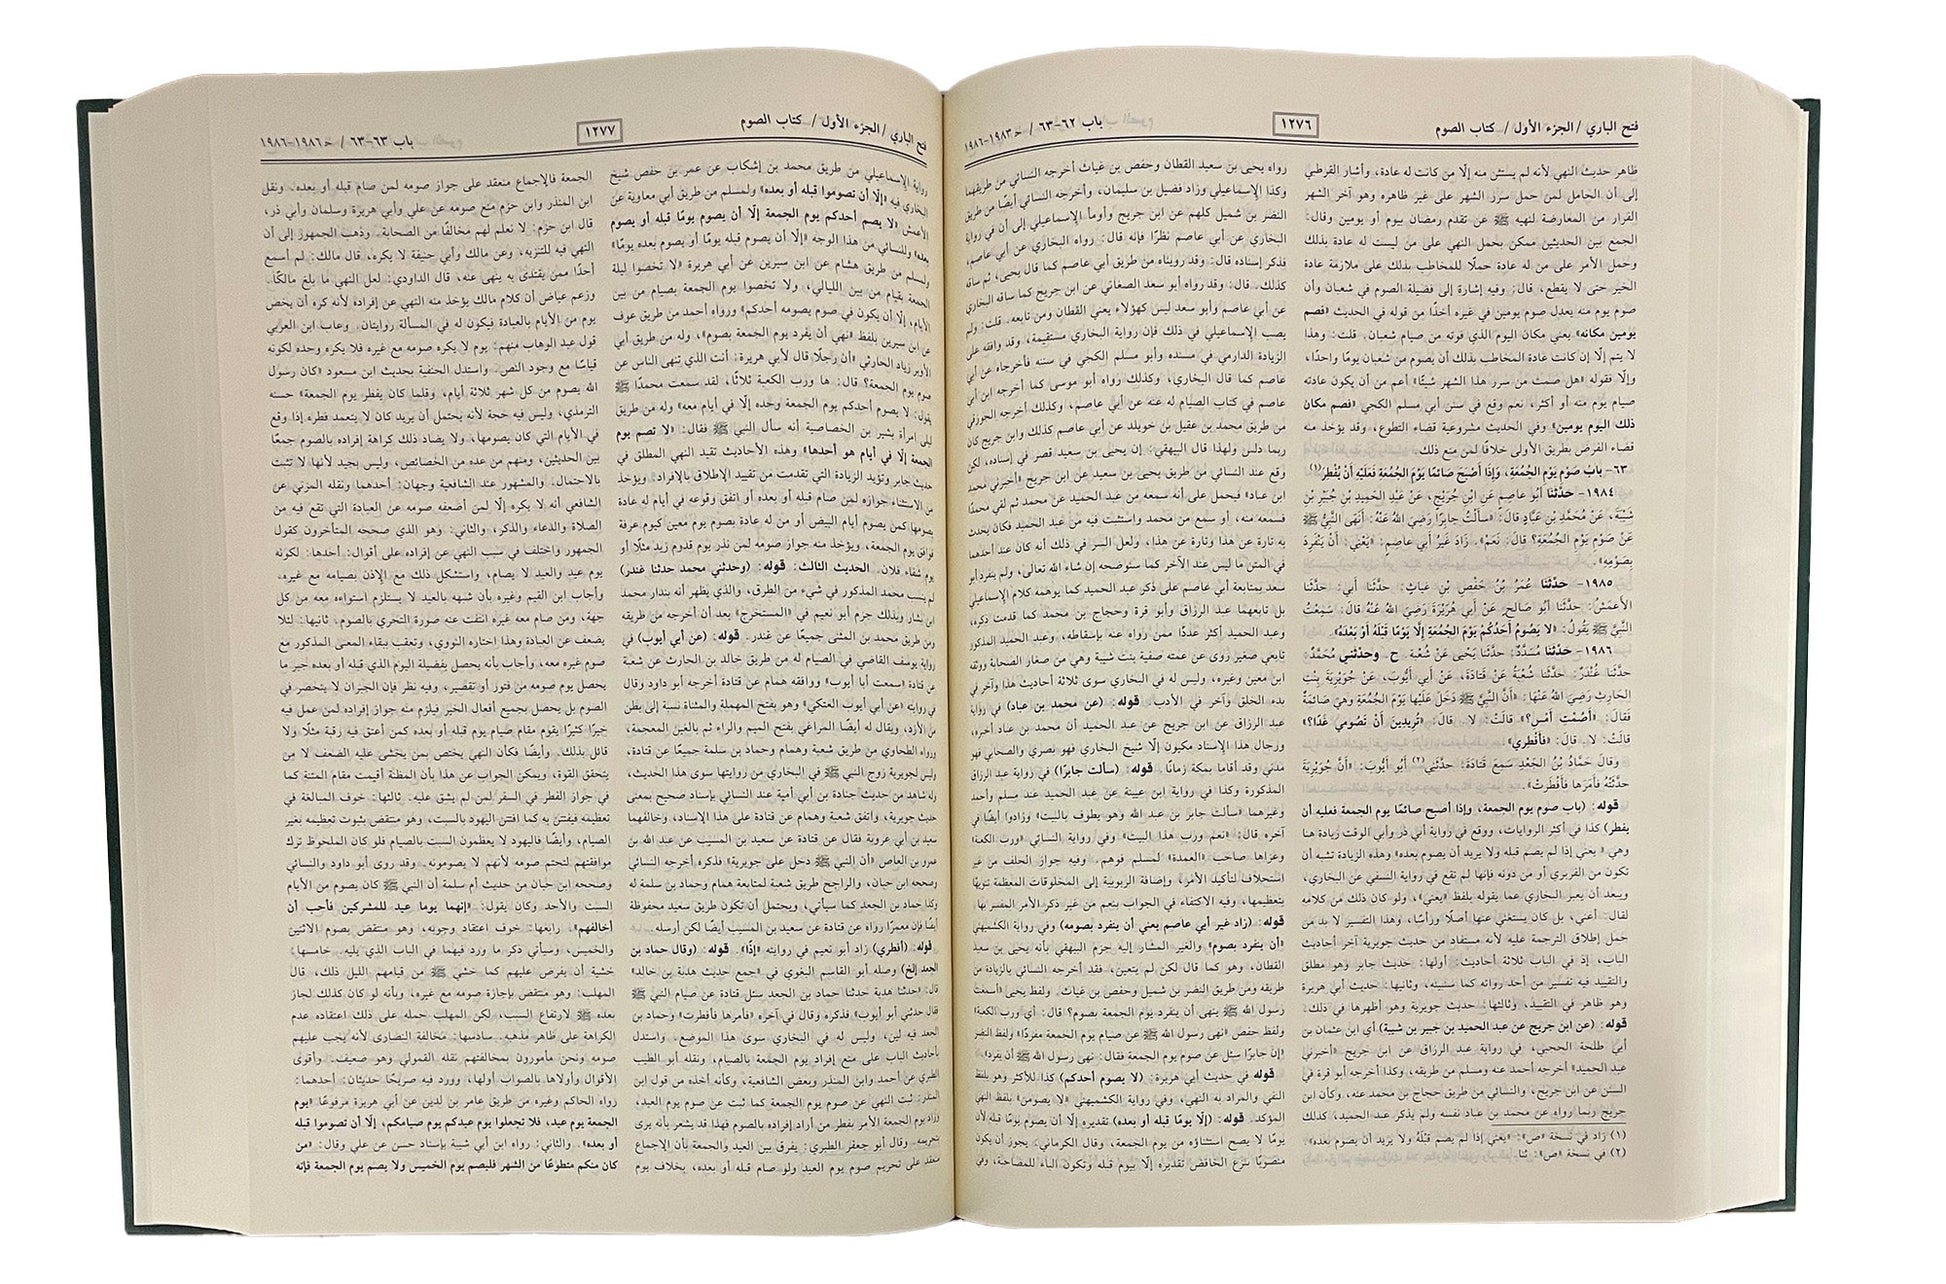 فتح الباري / الجزء الأول / كتاب الصوم
١٢٧٦
باب ٦٢-٦٣ / ح ١٩٨٣-١٩٨٦
ظاهر حديث النهي لأنه لم يستثن منه إلّا من كانت له عادة، وأشار القرطبي
إلى أن الحامل لمن حمل سرر الشهر على غير ظاهره وهو آخر الشهر
الفرار من المعارضة لنهيه ﷺ عن تقدم رمضان بيوم أو يومين وقال:
الجمع بين الحديثين ممكن بحمل النهي على من ليست له عادة بذلك
وحمل الأمر على من له عادة حملًا للمخاطب بذلك على ملازمة عادة
الخير حتى لا يقطع، قال: وفيه إشارة إلى فضيلة الصوم في شعبان وأن
صوم يوم منه يعدل صوم يومين في غيره أخذًا من قوله في الحديث «فصم
يومين مكانه» يعني مكان اليوم الذي فوته من صيام شعبان. قلت: وهذا
لا يتم إلّا إن كانت عادة المخاطب بذلك أن يصوم من شعبان يومًا واحدًا،
وإلّا فقوله «هل صمت من سرر هذا الشهر شيئًا» أعم من أن يكون عادته
صيام يوم منه أو أكثر، نعم وقع في سنن أبي مسلم الكجي «فصم مكان
ذلك اليوم يومين» وفي الحديث مشروعية قضاء التطوع، وقد يؤخذ منه
قضاء الفرض بطريق الأولى خلافًا لمن منع ذلك.
٦٣- بابُ صَوْمِ يَوْمِ الجُمُعَةِ، وَإِذَا أَصْبَحَ صَائمًا يَوْمَ الجُمُعَةِ فَعَلَيْهِ أَنْ يُفْطِرَ(١)
١٩٨٤- حَدَّثَنَا أَبُو عَاصِمٍ عَنِ ابْنِ جُرَيْجٍ، عَنْ عَبْدِ الحَمِيدِ بْنِ جُبَيْرِ بْنِ
شَيْبَةَ، عَنْ مُحَمَّدِ بْنِ عَبَّادٍ قَالَ: «سَأَلْتُ جَابِرًا رَضِيَ اللهُ عَنْهُ: أَنَهَى النَّبِيُّ ﷺ
عَنْ صَوْمِ يَوْمِ الجُمُعَةِ؟ قَالَ: نَعَمْ». زَادَ غَيْرُ أَبِي عَاصِمٍ: «يَعْنِي: أَنْ يَنْفَرِدَ
بِصَوْمِهِ».
١٩٨٥- حَدَّثَنَا عُمَرُ بْنُ حَفْصِ بْنِ غِيَاثٍ: حَدَّثَنَا أَبِي: حَدَّثَنَا
الأَعْمَشُ: حَدَّثَنَا أَبُو صَالِحٍ عَنْ أَبِي هُرَيْرَةَ رَضِيَ اللهُ عَنْهُ قَالَ: سَمِعْتُ
النَّبِيَّ ﷺ يَقُولُ: «لَا يَصُومُ أَحَدُكُمْ يَوْمَ الجُمُعَةِ إِلَّا يَوْمًا قَبْلَهُ أَوْ بَعْدَهُ».
١٩٨٦- حَدَّثَنَا مُسَدَّدٌ: حَدَّثَنَا يَحْيَى عَنْ شُعْبَةَ. ح وحدثني مُحَمَّدٌ:
حَدَّثَنَا غُنْدَرٌ: حَدَّثَنَا شُعْبَةُ عَنْ قَتَادَةَ، عَنْ أَبِي أَيُّوبَ، عَنْ جُوَيْرِيَةَ بِنْتِ
الحَارِثِ رَضِيَ اللهُ عَنْهَا: «أَنَّ النَّبِيَّ ﷺ دَخَلَ عَلَيْهَا يَوْمَ الجُمُعَةِ وَهِيَ صَائِمَةٌ
فَقَالَ: «أَصُمْتِ أَمْسِ؟» قَالَتْ: لَا. قَالَ: «تُرِيدِينَ أَنْ تَصُومِي غَدًا؟»
قَالَتْ: لَا. قَالَ: «فَأَفْطِرِي».
وَقَالَ حَمَّادُ بْنُ الجَعْدِ سَمِعَ قَتَادَةَ: حَدَّثَنِي(٢) أَبُو أَيُّوبَ: «أَنَّ جُوَيْرِيَةَ
حَدَّثَتْهُ فَأَمَرَهَا فَأَفْطَرَتْ».
قوله: (باب صوم يوم الجمعة، وإذا أصبح صائمًا يوم الجمعة فعليه أن
يفطر) كذا في أكثر الروايات، ووقع في رواية أبي ذر وأبي الوقت زيادة هنا
وهي «يعني إذا لم يصم قبله ولا يريد أن يصوم بعده» وهذه الزيادة تشبه أن
تكون من الفربري أو من دونه فإنها لم تقع في رواية النسفي عن البخاري،
ويبعد أن يعبر البخاري عما يقوله بلفظ «يعني»، ولو كان ذلك من كلامه
لقال: أعني، بل كان يستغني عنها أصلًا ورأسًا، وهذا التفسير لا بد من
حمل إطلاق الترجمة عليه لأنه مستفاد من حديث جويرية آخر أحاديث
الباب، إذ في الباب ثلاثة أحاديث: أولها: حديث جابر وهو مطلق
والتقييد فيه تفسير من أحد رواته كما سنبينه، وثانيها: حديث أبي هريرة
وهو ظاهر في التقييد، وثالثها: حديث جويرية وهو أظهرها في ذلك.
قوله: (عن ابن جريج عن عبد الحميد بن جبير بن شيبة) أي ابن عثمان بن
أبي طلحة الحجبي، في رواية عبد الرزاق عن ابن جريج «أخبرني
عبد الحميد» أخرجه أحمد عنه ومسلم من طريقه، وكذا أخرجه أبو قرة في
السنن عن ابن جريج، والنسائي من طريق حجاج بن محمد عنه، وكان ابن
جريج ربما رواه عن محمد بن عباد نفسه ولم يذكر عبد الحميد، كذلك
(١) زاد في نسخة «ص»: «يعني إذا لم يصم قبلَهُ ولا يريد أن يصوم بعده».
(٢) في نسخة «ص»: ثنا.
رواه يحيى بن سعيد القطان وحفص بن غياث أخرجه النسائي من طريقهما
وكذا الإسماعيلي وزاد فضيل بن سليمان، وأخرجه النسائي أيضًا من طريق
النضر بن شميل كلهم عن ابن جريج وأومأ الإسماعيلي إلى أن في رواية
البخاري عن أبي عاصم نظرًا فإنه قال: رواه البخاري عن أبي عاصم،
فذكر إسناده قال: وقد رويناه من طريق أبي عاصم كما قال يحيى، ثم ساقه
كذلك. قال: وقد رواه أبو سعد الصغاني عن ابن جريج كما ساقه البخاري
عن أبي عاصم وأبو سعد ليس كهؤلاء يعني القطان ومن تابعه. قلت: ولم
يصب الإسماعيلي في ذلك فإن رواية البخاري مستقيمة، وقد وافقه على
الزيادة الدارمي في مسنده وأبو مسلم الكجي في سننه فأخرجاه عن أبي
عاصم كما قال البخاري، وكذلك رواه أبو موسى كما أخرجه ابن أبي
عاصم في كتاب الصيام له عنه عن أبي عاصم، وكذلك أخرجه الجوزقي
من طريق محمد بن عقيل بن خويلد عن أبي عاصم كذلك وابن جريج كان
ربما دلس ولهذا قال البيهقي: إن يحيى بن سعيد قصر في إسناده، لكن
وقع عند النسائي من طريق يحيى بن سعيد عن ابن جريج «أخبرني محمد
ابن عباد» فيحمل على أنه سمعه من عبد الحميد عن محمد ثم لقي محمدًا
فسمعه منه، أو سمع من محمد واستثبت فيه من عبد الحميد فكان يحدث
به تارة عن هذا وتارة عن هذا، ولعل السر في ذلك أنه كان عند أحدهما
في المتن ما ليس عند الآخر كما سنوضحه إن شاء الله تعالى، ولم ينفرد أبو
سعد بمتابعة أبي عاصم على ذكر عبد الحميد كما يوهمه كلام الإسماعيلي
بل تابعهما عبد الرزاق وأبو قرة وحجاج بن محمد كما قدمت ذكره،
وعبد الحميد أكثر عددًا ممن رواه عنه بإسقاطه، وعند الحميد المذكور
تابعي صغير روى عن عمته صفية بنت شيبة وهي من صغار الصحابة ووثقه
ابن معين وغيره، وليس له في البخاري سوى ثلاثة أحاديث هذا وآخر في
بدء الخلق وآخر في الأدب. قوله: (عن محمد بن عباد) في رواية
عبد الرزاق عن ابن جريج عن عبد الحميد أن محمد بن عباد أخبره،
ورجال هذا الإسناد مكيون إلّا شيخ البخاري فهو بصري والصحابي فهو
مدني وقد أقاما بمكة زمانًا. قوله: (سألت جابرًا) في رواية عبد الرزاق
المذكورة وكذا في رواية ابن عيينة عن عبد الحميد عند مسلم وأحمد
وغيرهما «سألت جابر بن عبد الله وهو يطوف بالبيت» وزادوا أيضًا في
آخره قال: «نعم ورب هذا البيت» وفي رواية النسائي «ورب الكعبة»
وعزاها صاحب «العمدة» لمسلم فوهم. وفيه جواز الحلف من غير
استحلاف لتأكيد الأمر، وإضافة الربوبية إلى المخلوقات المعظمة تنويهًا
بتعظيمها، وفيه الاكتفاء في الجواب بنعم من غير ذكر الأمر المفسر بها.
قوله: (زاد غير أبي عاصم يعني أن ينفرد بصومه) وفي رواية الكشميهني
«أن ينفرد بصوم» والغير المشار إليه جزم البيهقي بأنه يحيى بن سعيد
القطان، وهو كما قال لكن لم يتعين، فقد أخرجه النسائي بالزيادة من
طريقه ومن طريق النضر بن شميل وحفص بن غياث. ولفظ يحيى «أسمعت
رسول الله ﷺ ينهى أن ينفرد يوم الجمعة بصوم؟ قال: أي ورب الكعبة»
ولفظ حفص «نهى رسول الله ﷺ عن صيام يوم الجمعة مفردًا» ولفظ النضر
«إن جابرًا سئل عن صوم يوم الجمعة فقال: نهى رسول الله ﷺ أن يفرد».
قوله في حديث أبي هريرة: (لا يصوم أحدكم) كذا للأكثر وهو بلفظ
النفي والمراد به النهي، وفي رواية الكشميهني «لا يصومن» بلفظ النهي
المؤكد. قوله: (إلّا يومًا قبله أو بعده) تقديره إلّا أن يصوم يومًا قبله لأن
يومًا لا يصح استثناؤه من يوم الجمعة، وقال الكرماني: يجوز أن يكون
منصوبًا بنزع الخافض تقديره إلّا بيوم قبله وتكون الباء للمصاحبة، وفي
فتح الباري / الجزء الأول / كتاب الصوم
١٢٧٧
باب ٦٣-٦٣ / ح ١٩٨٦-١٩٨٦
رواية الإسماعيلي من طريق محمد بن إشكاب عن عمر بن حفص شيخ
البخاري فيه «إلّا أن تصوموا قبله أو بعده» ولمسلم من طريق أبي معاوية عن
الأعمش «لا يصم أحدكم يوم الجمعة إلّا أن يصوم يومًا قبله أو يصوم
بعده» وللنسائي من هذا الوجه «إلّا أن يصوم قبله يومًا أو يصوم بعده يومًا»
ولمسلم من طريق هشام عن ابن سيرين عن أبي هريرة «لا تخصوا ليلة
الجمعة بقيام من بين الليالي، ولا تخصوا يوم الجمعة بصيام من بين
الأيام، إلّا أن يكون في صوم يصومه أحدكم» ورواه أحمد من طريق عوف
عن ابن سيرين بلفظ «نهي أن يفرد يوم الجمعة بصوم»، وله من طريق أبي
الأوبر زياد الحارثي «أن رجلًا قال لأبي هريرة: أنت الذي تنهى الناس عن
صوم يوم الجمعة؟ قال: ها ورب الكعبة ثلاثًا، لقد سمعت محمدًا ﷺ
يقول: لا يصوم أحدكم يوم الجمعة وحده إلّا في أيام معه» وله من طريق
ليلى امرأة بشير بن الخصاصية أنه سأل النبي ﷺ فقال: «لا تصم يوم
الجمعة إلّا في أيام هو أحدها» وهذه الأحاديث تقيد النهي المطلق في
حديث جابر وتؤيد الزيادة التي تقدمت من تقييد الإطلاق بالإفراد. ويؤخذ
من الاستثناء جوازه لمن صام قبله أو بعده أو اتفق وقوعه في أيام له عادة
بصومها كمن يصوم أيام البيض أو من له عادة بصوم يوم معين كيوم عرفة
فوافق يوم الجمعة، ويؤخذ منه جواز صومه لمن نذر يوم قدوم زيد مثلًا أو
يوم شفاء فلان. الحديث الثالث: قوله: (وحدثني محمد حدثنا غندر)
لم ينسب محمد المذكور في شيء من الطرق، والذي يظهر أنه بندار محمد
ابن بشار وبذلك جزم أبو نعيم في «المستخرج» بعد أن أخرجه من طريقه
ومن طريق محمد بن المثنى جميعًا عن غندر. قوله: (عن أبي أيوب) في
رواية يوسف القاضي في الصيام له من طريق خالد بن الحارث عن شعبة
عن قتادة «سمعت أبا أيوب» ووافقه همام عن قتادة أخرجه أبو داود وقال
في روايته «عن أبي أيوب العتكي» وهو بفتح المهملة والمثناة نسبة إلى بطن
من الأزد، ويقال له أيضًا المراغي بفتح الميم والراء ثم بالغين المعجمة،
ورواه الطحاوي من طريق شعبة وهمام وحماد بن سلمة جميعًا عن قتادة،
وليس لجويرية زوج النبي ﷺ في البخاري من روايتها سوى هذا الحديث،
وله شاهد من حديث جنادة بن أبي أمية عند النسائي بإسناد صحيح بمعنى
حديث جويرية، واتفق شعبة وهمام عن قتادة على هذا الإسناد، وخالفهما
سعيد بن أبي عروبة فقال عن قتادة عن سعيد بن المسيب عن عبد الله بن
عمرو بن العاص «أن النبي ﷺ دخل على جويرية» فذكره أخرجه النسائي
وصححه ابن حبان، والراجح طريق شعبة لمتابعة همام وحماد بن سلمة له
وكذا حماد بن الجعد كما سيأتي، ويحتمل أن تكون طريق سعيد محفوظة
أيضًا فإن معمرًا رواه عن قتادة عن سعيد بن المسيب أيضًا لكن أرسله.
قوله: (أفطري) زاد أبو نعيم في روايته «إذًا». قوله: (وقال حماد بن
الجعد إلخ) وصله أبو القاسم البغوي في «جمع حديث هدبة بن خالد»
قال: «حدثنا هدبة حدثنا حماد بن الجعد سئل قتادة عن صيام النبي ﷺ
فقال حدثني أبو أيوب» فذكره وقال في آخره «فأمرها فأفطرت» وحماد بن
الجعد فيه لين، وليس له في البخاري سوى هذا الموضع. واستدل
بأحاديث الباب على منع إفراد يوم الجمعة بالصيام، ونقله أبو الطيب
الطبري عن أحمد وابن المنذر وبعض الشافعية، وكأنه أخذه من قول ابن
المنذر: ثبت النهي عن صوم يوم الجمعة كما ثبت عن صوم يوم العيد،
وزاد يوم الجمعة الأمر بفطر من أراد إفراده بالصوم فهذا قد يشعر بأنه يرى
بتحريمه. وقال أبو جعفر الطبري: يفرق بين العيد والجمعة بأن الإجماع
منعقد على تحريم صوم يوم العيد ولو صام قبله أو بعده، بخلاف يوم
الجمعة فالإجماع منعقد على جواز صومه لمن صام قبله أو بعده. ونقل
ابن المنذر وابن حزم منع صومه عن علي وأبي هريرة وسلمان وأبي ذر،
قال ابن حزم: لا نعلم لهم مخالفًا من الصحابة. وذهب الجمهور إلى أن
النهي فيه للتنزيه، وعن مالك وأبي حنيفة لا يكره، قال مالك: لم أسمع
أحدًا ممن يقتدى به ينهى عنه، قال الداودي: لعل النهي ما بلغ مالكًا.
وزعم عياض أن كلام مالك يؤخذ منه النهي عن إفراده لأنه كره أن يخص
يوم من الأيام بالعبادة فيكون له في المسألة روايتان. وعاب ابن العربي
قول عبد الوهاب منهم: يوم لا يكره صومه مع غيره فلا يكره وحده لكونه
قياسًا مع وجود النص. واستدل الحنفية بحديث ابن مسعود «كان رسول
الله يصوم من كل شهر ثلاثة أيام، وقلما كان يفطر يوم الجمعة» حسنه
الترمذي، وليس فيه حجة لأنه يحتمل أن يريد كان لا يتعمد فطره إذا وقع
في الأيام التي كان يصومها، ولا يضاد ذلك كراهة إفراده بالصوم جمعًا
بين الحديثين، ومنهم من عده من الخصائص، وليس بجيد لأنها لا تثبت
بالاحتمال. والمشهور عند الشافعية وجهان: أحدهما ونقله المزني عن
الشافعي أنه لا يكره إلّا لمن أضعفه صومه عن العبادة التي تقع فيه من
الصلاة والدعاء والذكر، والثاني: وهو الذي صححه المتأخرون كقول
الجمهور واختلف في سبب النهي عن إفراده على أقوال: أحدها: لكونه
يوم عيد والعيد لا يصام، واستشكل ذلك مع الإذن بصيامه مع غيره.
وأجاب ابن القيم وغيره بأن شبهه بالعيد لا يستلزم استواءه معه من كل
جهة، ومن صام معه غيره انتفت عنه صورة التحري بالصوم. ثانيها: لئلا
يضعف عن العبادة وهذا اختاره النووي، وتعقب ببقاء المعنى المذكور مع
صوم غيره معه، وأجاب بأنه يحصل بفضيلة اليوم الذي قبله أو بعده جبر ما
يحصل يوم صومه من فتور أو تقصير، وفيه نظر فإن الجبران لا ينحصر في
الصوم بل يحصل بجميع أفعال الخير فيلزم منه جواز إفراده لمن عمل فيه
خيرًا كثيرًا يقوم مقام صيام يوم قبله أو بعده كمن أعتق فيه رقبة مثلًا ولا
قائل بذلك. وأيضًا فكأن النهي يختص بمن يخشى عليه الضعف لا من
يتحقق القوة، ويمكن الجواب عن هذا بأن المظنة أقيمت مقام المئنة كما
في جواز الفطر في السفر لمن لم يشق عليه. ثالثها: خوف المبالغة في
تعظيمه فيفتتن به كما افتتن اليهود بالسبت، وهو منتقض بثبوت تعظيمه بغير
الصيام، وأيضًا فاليهود لا يعظمون السبت بالصيام فلو كان الملحوظ ترك
موافقتهم لتحتم صومه لأنهم لا يصومونه. وقد روى أبو داود والنسائي
وصححه ابن حبان من حديث أم سلمة أن النبي ﷺ كان يصوم من الأيام
السبت والأحد وكان يقول: «إنهما يوما عيد للمشركين فأحب أن
أخالفهم». رابعها: خوف اعتقاد وجوبه، وهو منتقض بصوم الاثنين
والخميس، وسيأتي ذكر ما ورد فيهما في الباب الذي يليه. خامسها:
خشية أن يفرض عليهم كما خشي ﷺ من قيامهم الليل ذلك، قال
المهلب: وهو منتقض بإجازة صومه مع غيره، وبأنه لو كان كذلك لجاز
بعده ﷺ لارتفاع السبب، لكن المهلب حمله على ذلك اعتقاده عدم
الكراهة على ظاهر مذهبه. سادسها: مخالفة النصارى لأنه يجب عليهم
صومه ونحن مأمورون بمخالفتهم نقله القمولي وهو ضعيف. وأقوى
الأقوال وأولاها بالصواب أولها، وورد فيه صريحًا حديثان: أحدهما:
رواه الحاكم وغيره من طريق عامر بن لدين عن أبي هريرة مرفوعًا «يوم
الجمعة يوم عيد، فلا تجعلوا يوم عيدكم يوم صيامكم، إلّا أن تصوموا قبله
أو بعده». والثاني: رواه ابن أبي شيبة بإسناد حسن عن علي وقال: «من
كان منكم متطوعًا من الشهر فليصم يوم الخميس ولا يصم يوم الجمعة فإنه